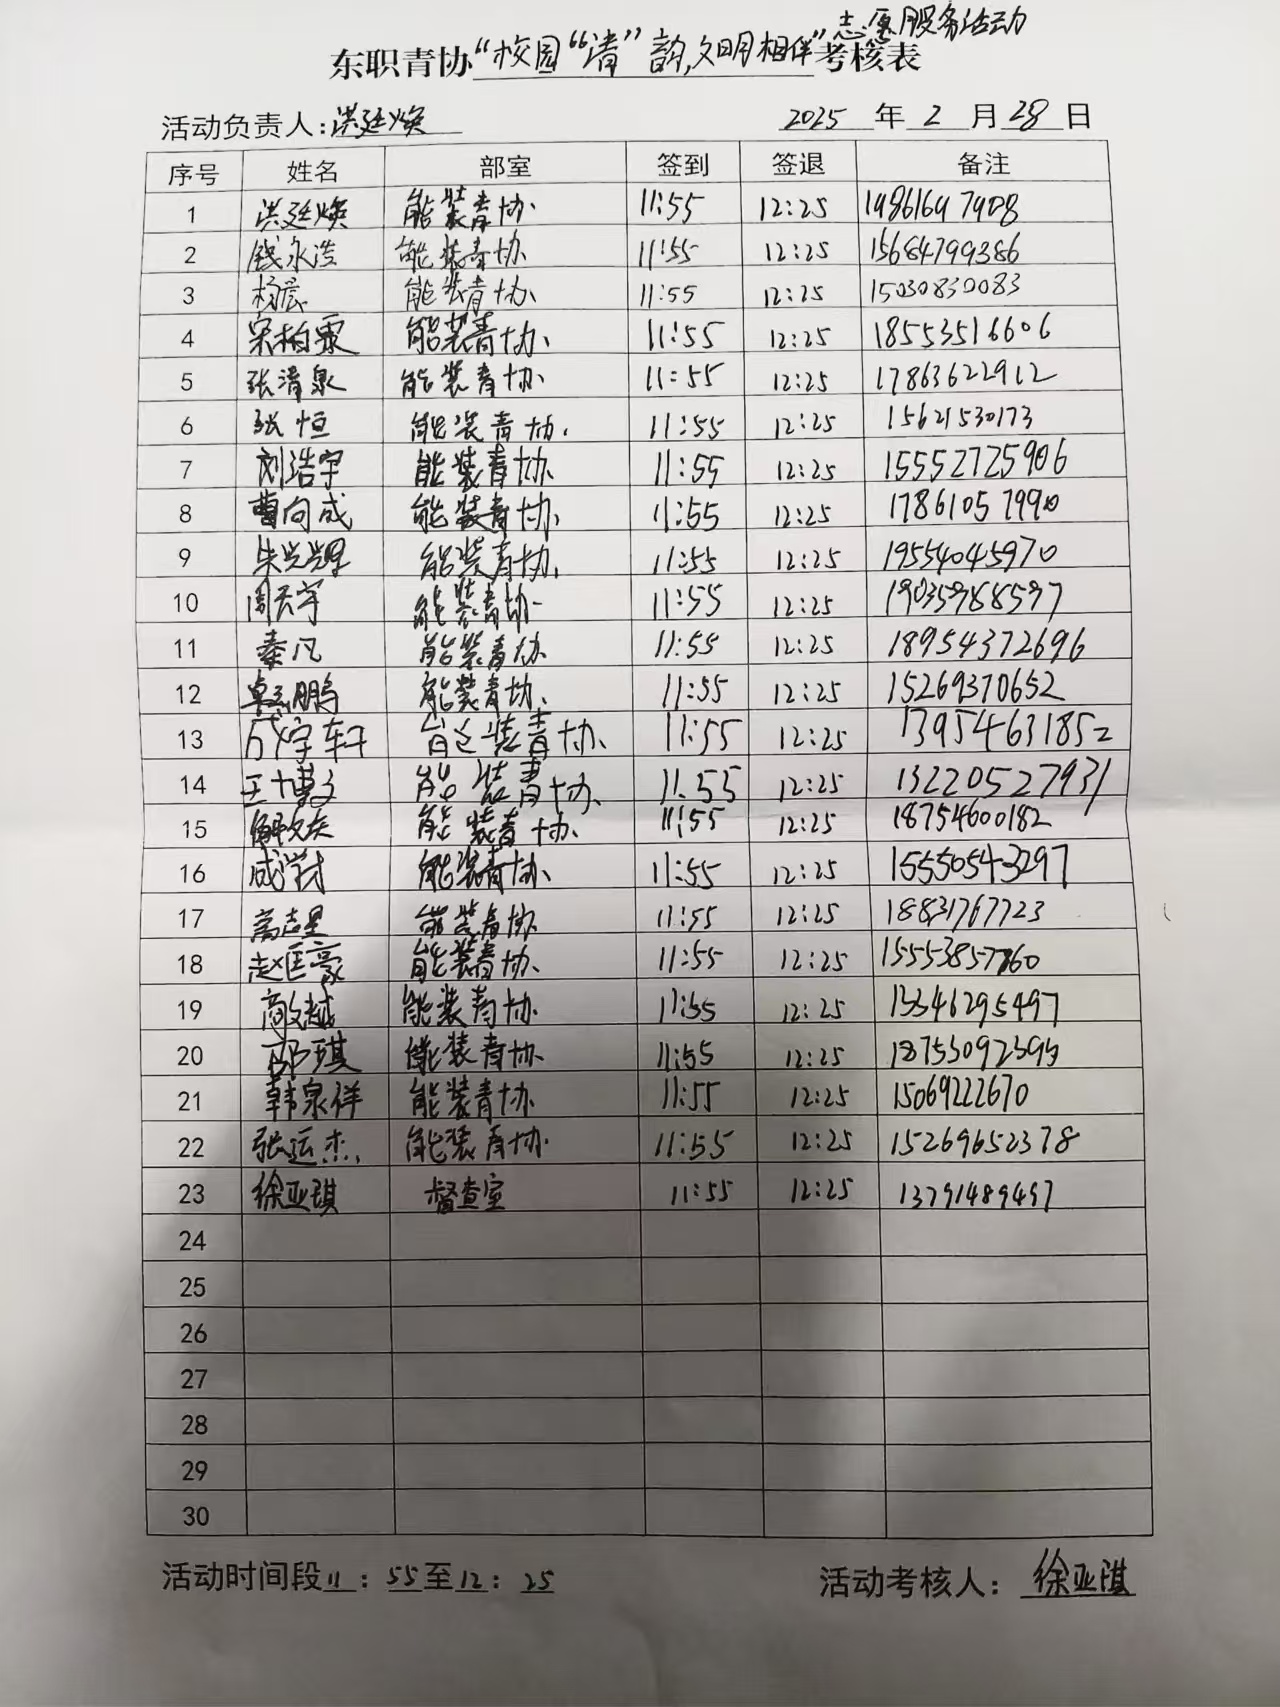 志愿服务活动
东职青协“校园“清”韵,文明相伴”考核表
活动负责人:洪廷焕 2025年2月28日
序号 姓名 部室 签到 签退 备注
1 洪廷焕 能装青协 11:55 12:25 19861647908
2 钱永浩 能装青协 11:55 12:25 15684799386
3 杨宸 能装青协 11:55 12:25 15030830083
4 宋柏霖 能装青协 11:55 12:25 18553516606
5 张清泉 能装青协 11:55 12:25 17863622912
6 张恒 能装青协 11:55 12:25 15621530173
7 刘浩宇 能装青协 11:55 12:25 15552725906
8 曹向成 能装青协 11:55 12:25 17861057990
9 朱兴辉 能装青协 11:55 12:25 19554045970
10 周天宇 能装青协 11:55 12:25 19035968597
11 秦凡 能装青协 11:55 12:25 18954372696
12 鹏 能装青协 11:55 12:25 15269370652
13 成宇轩 能装青协 11:55 12:25 13954631852
14 王博文 能装青协 11:55 12:25 13220527931
15 解文庆 能装青协 11:55 12:25 18754600182
16 成尝试 能装青协 11:55 12:25 15550543297
17 高志星 能装青协 11:55 12:25 18831767723
18 赵匡豪 能装青协 11:55 12:25 15553857760
19 商文越 能装青协 11:55 12:25 13346295497
20 邵琪 能装青协 11:55 12:25 18753092395
21 韩泉祥 能装青协 11:55 12:25 15069222670
22 张运杰 能装青协 11:55 12:25 15269652378
23 徐亚琪 督查室 11:55 12:25 13791489497
24
25
26
27
28
29
30
活动时间段11:55至12:25 活动考核人:徐亚琪